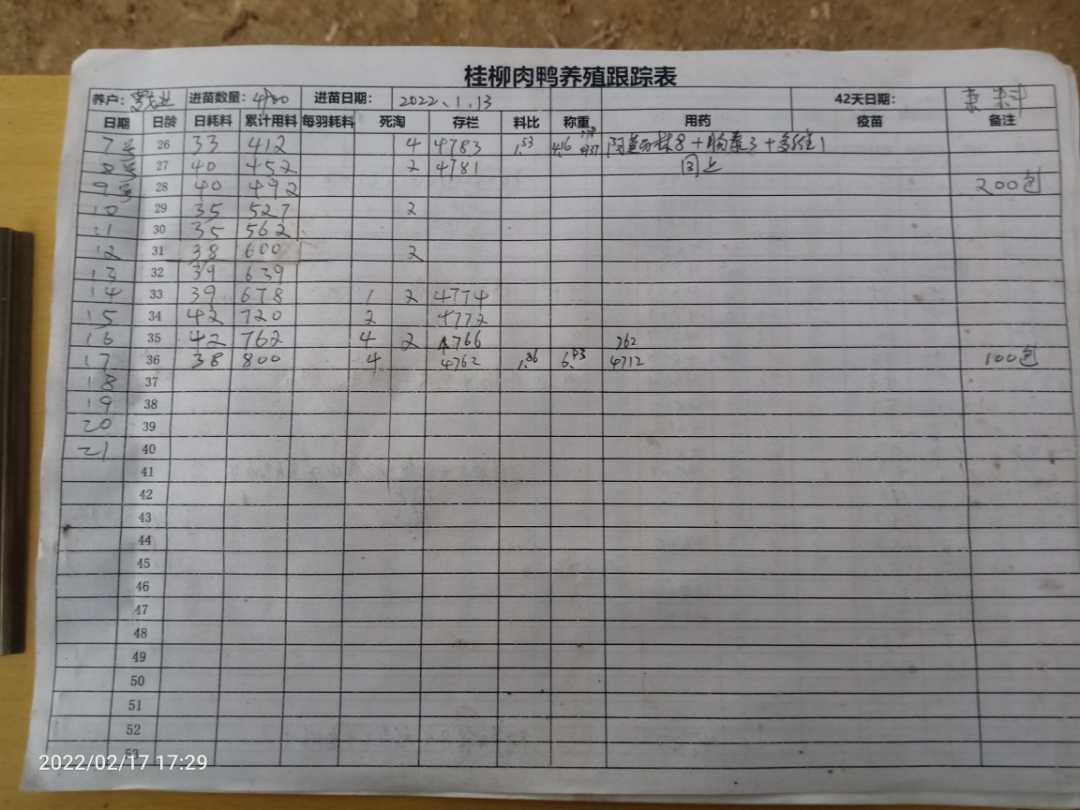 桂柳肉鸭养殖跟踪表
养户: 进苗数量: 进苗日期: 2022、1.13 42天日期: 料
日期 日龄 日耗料 累计用料 每羽耗料 死淘 存栏 料比 称重 用药 疫苗 备注
7号 26 33 412 4 4783 1.53 4.16 +多维1
8号 27 40 452 2 4781 同上
9号 28 40 492 200包
10 29 35 527 2
11 30 35 562
12 31 38 600 2
13 32 39 639
14 33 39 678 1 2 4774
15 34 42 720 2 4772
16 35 42 762 4 2 4766 762
17 36 38 800 4 4762 1.86 6.43 4712 100包
18 37
19 38
20 39
21 40
41
42
43
44
45
46
47
48
49
50
51
52
53
2022/02/17 17:29